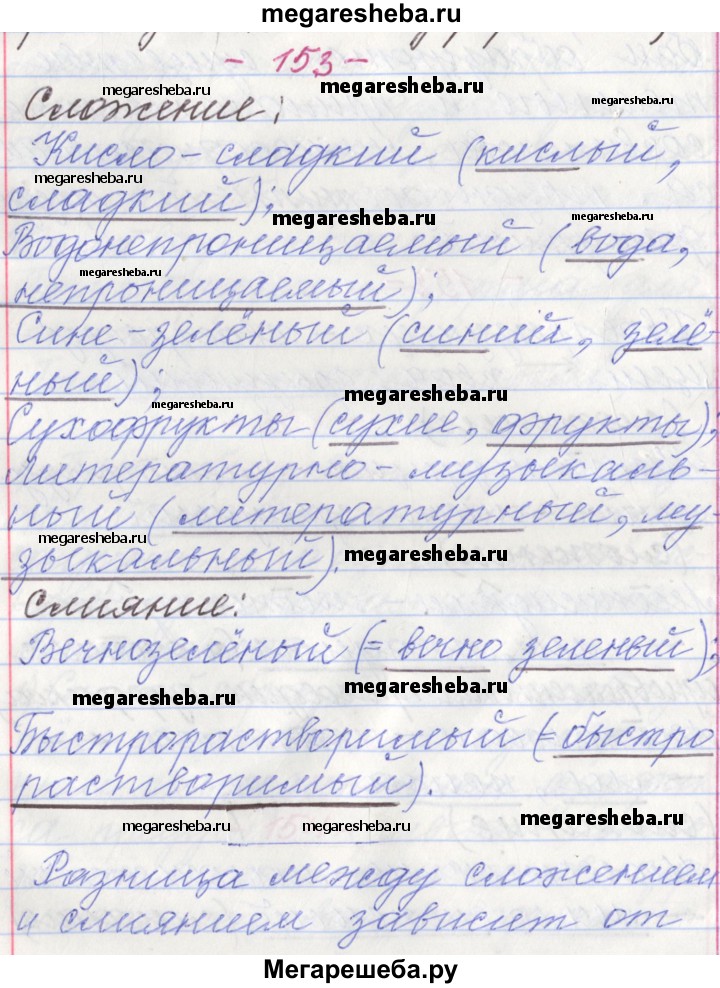 megaresheba.ru
- 153 -
megaresheba.ru
megaresheba.ru
megaresheba.ru
Сложение:
Кисло-сладкий (кислый,
megaresheba.ru
сладкий);
megaresheba.ru
megaresheba.ru
Водонепроницаемый (вода,
megaresheba.ru
непроницаемый);
Сине-зелёный (синий, зелё-
ный);
megaresheba.ru
megaresheba.ru
Сухофрукты (сухие, фрукты);
Литературно-музыкаль-
ный (литературный, му-
megaresheba.ru
megaresheba.ru
зыкальный).
Слияние:
Вечнозелёный (= вечно зеленый);
megaresheba.ru
megaresheba.ru
Быстрорастворимый (= быстро
растворимый).
megaresheba.ru
megaresheba.ru
megaresheba.ru
Разница между сложением
и слиянием зависит от
Мегарешеба.ру